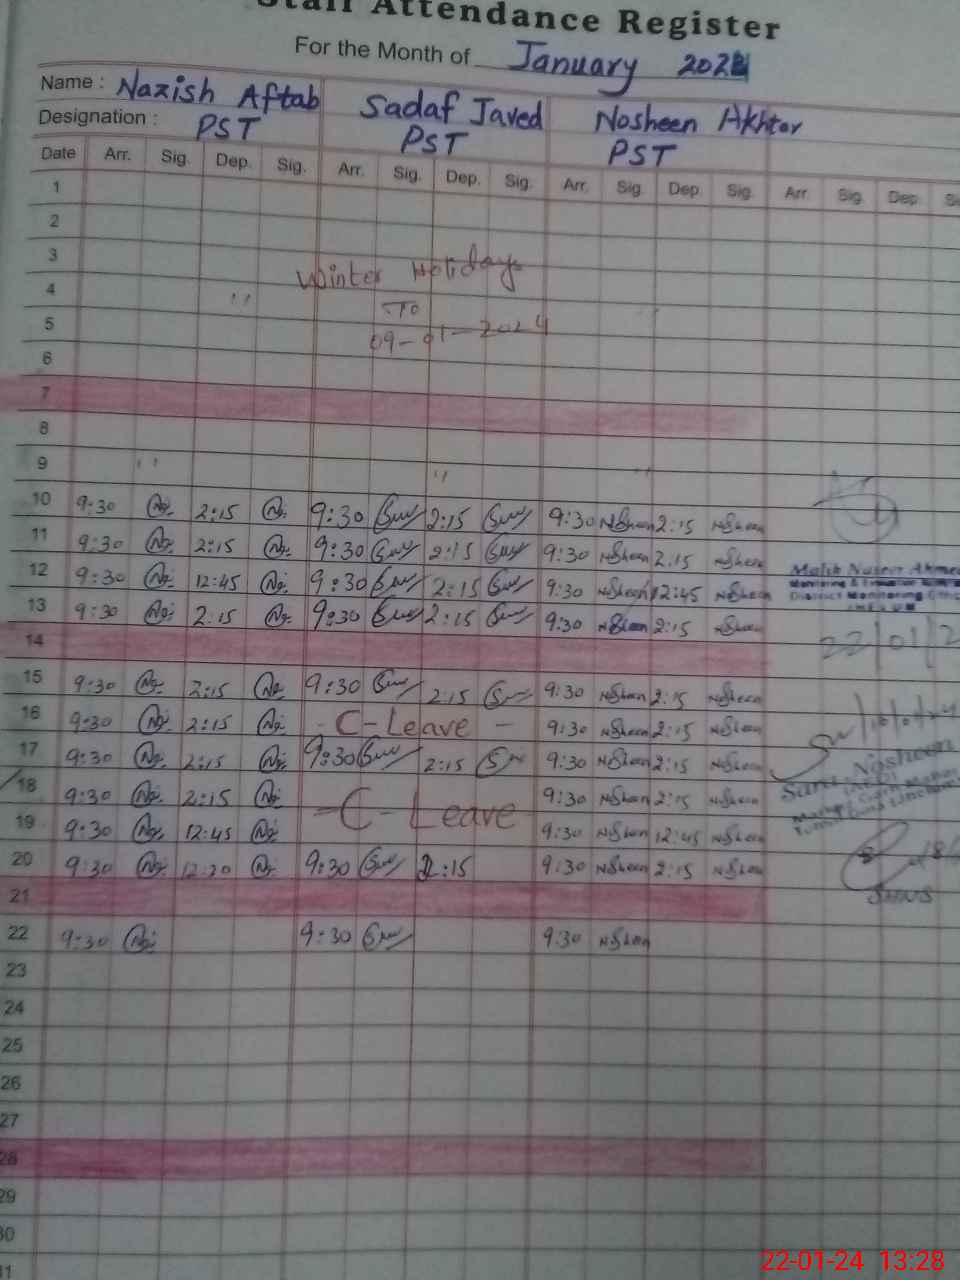 Staff Attendance Register
For the Month of January 2024
Name : Nazish Aftab Sadaf Javed Nosheen Akhtar
Designation : PST PST PST
Date Arr. Sig. Dep. Sig. Arr. Sig. Dep. Sig. Arr. Sig. Dep. Sig. Arr. Sig. Dep.
1
2
3 Winter Holidays
4 " To
5 09-01-2024
6
7
8
9 " " "
10 9:30 2:15 9:30 2:15 9:30 NSheen 2:15 NSheen
11 9:30 2:15 9:30 2:15 9:30 NSheen 2:15 NSheen
12 9:30 12:45 9:30 2:15 9:30 NSheen 12:45 NSheen
13 9:30 2:15 9:30 2:15 9:30 NSheen 2:15 NSheen
14
15 9:30 2:15 9:30 2:15 9:30 NSheen 2:15 NSheen
16 9:30 2:15 - C-Leave - 9:30 NSheen 2:15 NSheen
17 9:30 2:15 9:30 2:15 9:30 NSheen 2:15 NSheen
18 9:30 2:15 - C-Leave 9:30 NSheen 2:15 NSheen
19 9:30 12:45 9:30 NSheen 12:45 NSheen
20 9:30 12:20 9:30 2:15 9:30 NSheen 2:15 NSheen
21
22 9:30 9:30 9:30 NSheen
23
24
25
26
27
28
29
30
31
Malik Naseer Ahmed
District Monitoring
22/01/2
Nosheen
22-01-24 13:28